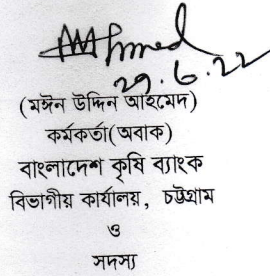 Ahmed
29.6.22
(মঈন উদ্দিন আহমেদ)
কর্মকর্তা(অবাক)
বাংলাদেশ কৃষি ব্যাংক
বিভাগীয় কার্যালয়, চট্টগ্রাম
ও
সদস্য